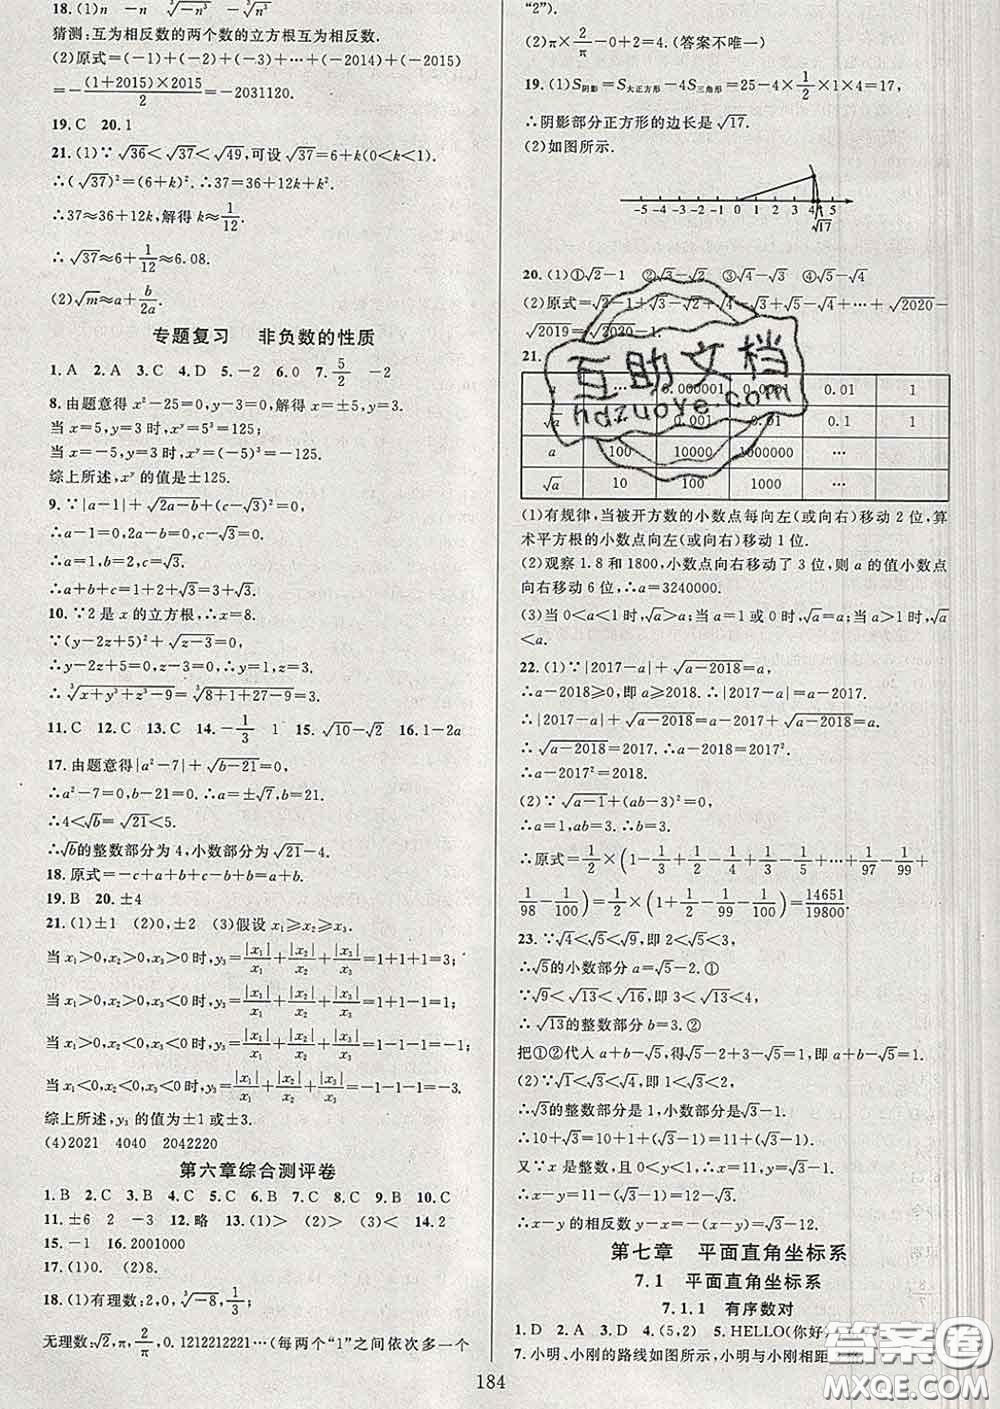 18.(1)n -n ∛n³ ∛-n³
猜测:互为相反数的两个数的立方根互为相反数.
(2)原式=(-1)+(-2)+(-3)+…+(-2014)+(-2015)
=-(1+2015)×2015/2=-2031120.
19.C 20.1
21.(1)∵√36<√37<√49,可设√37=6+k(0<k<1).
∴(√37)²=(6+k)².∴37=36+12k+k².
∴37≈36+12k,解得k≈1/12.
∴√37≈6+1/12≈6.08.
(2)√m≈a+b/2a.
专题复习 非负数的性质
1.A 2.A 3.C 4.D 5.-2 6.0 7.5/2 -2
8.由题意得x²-25=0,y-3=0,解得x=±5,y=3.
当x=5,y=3时,xʸ=5³=125;
当x=-5,y=3时,xʸ=(-5)³=-125.
综上所述,xʸ的值是±125.
9.∵|a-1|+√2a-b+(c-√3)²=0,
∴a-1=0,2a-b=0,c-√3=0.
∴a=1,b=2,c=√3.
∴a+b+c=1+2+√3=3+√3.
10.∵2是x的立方根,∴x=8.
∵(y-2z+5)²+√z-3=0,
∴y-2z+5=0,z-3=0.∴y=1,z=3.
∴∛x+y³+z³-9=∛8+1+27-9=3.
11.C 12.C 13.C 14.-1/3 1 15.√10-√2 16.1-2a
17.由题意得|a²-7|+√b-21=0,
∴a²-7=0,b-21=0.∴a=±√7,b=21.
∴4<√b=√21<5.
∴√b的整数部分为4,小数部分为√21-4.
18.原式=-c+a+b+c=a+b.
19.B 20.±4
21.(1)±1 (2)0,±2 (3)假设x₁≥x₂≥x₃.
当x₁>0,x₂>0,x₃>0时,y₃=|x₁|/x₁+|x₂|/x₂+|x₃|/x₃=1+1+1=3;
当x₁>0,x₂>0,x₃<0时,y₃=|x₁|/x₁+|x₂|/x₂+|x₃|/x₃=1+1-1=1;
当x₁>0,x₂<0,x₃<0时,y₃=|x₁|/x₁+|x₂|/x₂+|x₃|/x₃=1-1-1=-1;
当x₁<0,x₂<0,x₃<0时,y₃=|x₁|/x₁+|x₂|/x₂+|x₃|/x₃=-1-1-1=-3.
综上所述,y₃的值为±1或±3.
(4)2021 4040 2042220
第六章综合测评卷
1.B 2.C 3.B 4.C 5.C 6.B 7.C 8.B 9.B 10.C
11.±6 2 -3 12.略 13.(1)> (2)> (3)< 14.2
15.-1 16.2001000
17.(1)0. (2)8.
18.(1)有理数:2,0,∛-8,1/3;
无理数:√2,π,2/π,0.1212212221…(每两个"1"之间依次多一个
"2").
(2)π×2/π-0+2=4.(答案不唯一)
19.(1)S阴影=S大正方形-4S三角形=25-4×1/2×1×4=17,
∴阴影部分正方形的边长是√17.
(2)如图所示.
-5 -4 -3 -2 -1 0 1 2 3 4 5
√17
20.(1)①√2-1 ②√3-√2 ③√4-√3 ④√5-√4
(2)原式=√2-1+√3-√2+√4-√3+√5-√4+…+√2020-
√2019=√2020-1.
21.
a … 0.000001 0.0001 0.01 1
√a … 0.001 0.01 0.1 1
a 100 10000 1000000 …
√a 10 100 1000 …
(1)有规律,当被开方数的小数点每向左(或向右)移动2位,算
术平方根的小数点向左(或向右)移动1位.
(2)观察1.8和1800,小数点向右移动了3位,则a的值小数点
向右移动6位,∴a=3240000.
(3)当0<a<1时,√a>a;当a=1或0时,√a=a;当a>1时,√a
<a.
22.(1)∵|2017-a|+√a-2018=a,
∴a-2018≥0,即a≥2018.∴|2017-a|=a-2017.
∴|2017-a|+√a-2018=a-2017+√a-2018=a.
∴√a-2018=2017.∴a-2018=2017².
∴a-2017²=2018.
(2)∵√a-1+(ab-3)²=0,
∴a=1,ab=3.∴b=3.
∴原式=1/2×(1-1/3+1/2-1/4+1/3-1/5+…+1/97-1/99+
1/98-1/100)=1/2×(1+1/2-1/99-1/100)=14651/19800.
23.∵√4<√5<√9,即2<√5<3.
∴√5的小数部分a=√5-2.①
∵√9<√13<√16,即3<√13<4.
∴√13的整数部分b=3.②
把①②代入a+b-√5,得√5-2+3-√5=1,即a+b-√5=1.
(2)∵√1<√3<√4,即1<√3<2.
∴√3的整数部分是1,小数部分是√3-1.
∴10+√3=10+1+(√3-1)=11+(√3-1).
又∵x是整数,且0<y<1,∴x=11,y=√3-1.
∴x-y=11-(√3-1)=12-√3.
∴x-y的相反数y-x=-(x-y)=√3-12.
第七章 平面直角坐标系
7.1 平面直角坐标系
7.1.1 有序数对
1.D 2.D 3.A 4.(5,2) 5.HELLO(你好)
7.小明、小刚的路线如图所示,小明与小刚相距
184
互助文档
hdzuoye.com
答案圈
MXQE.COM